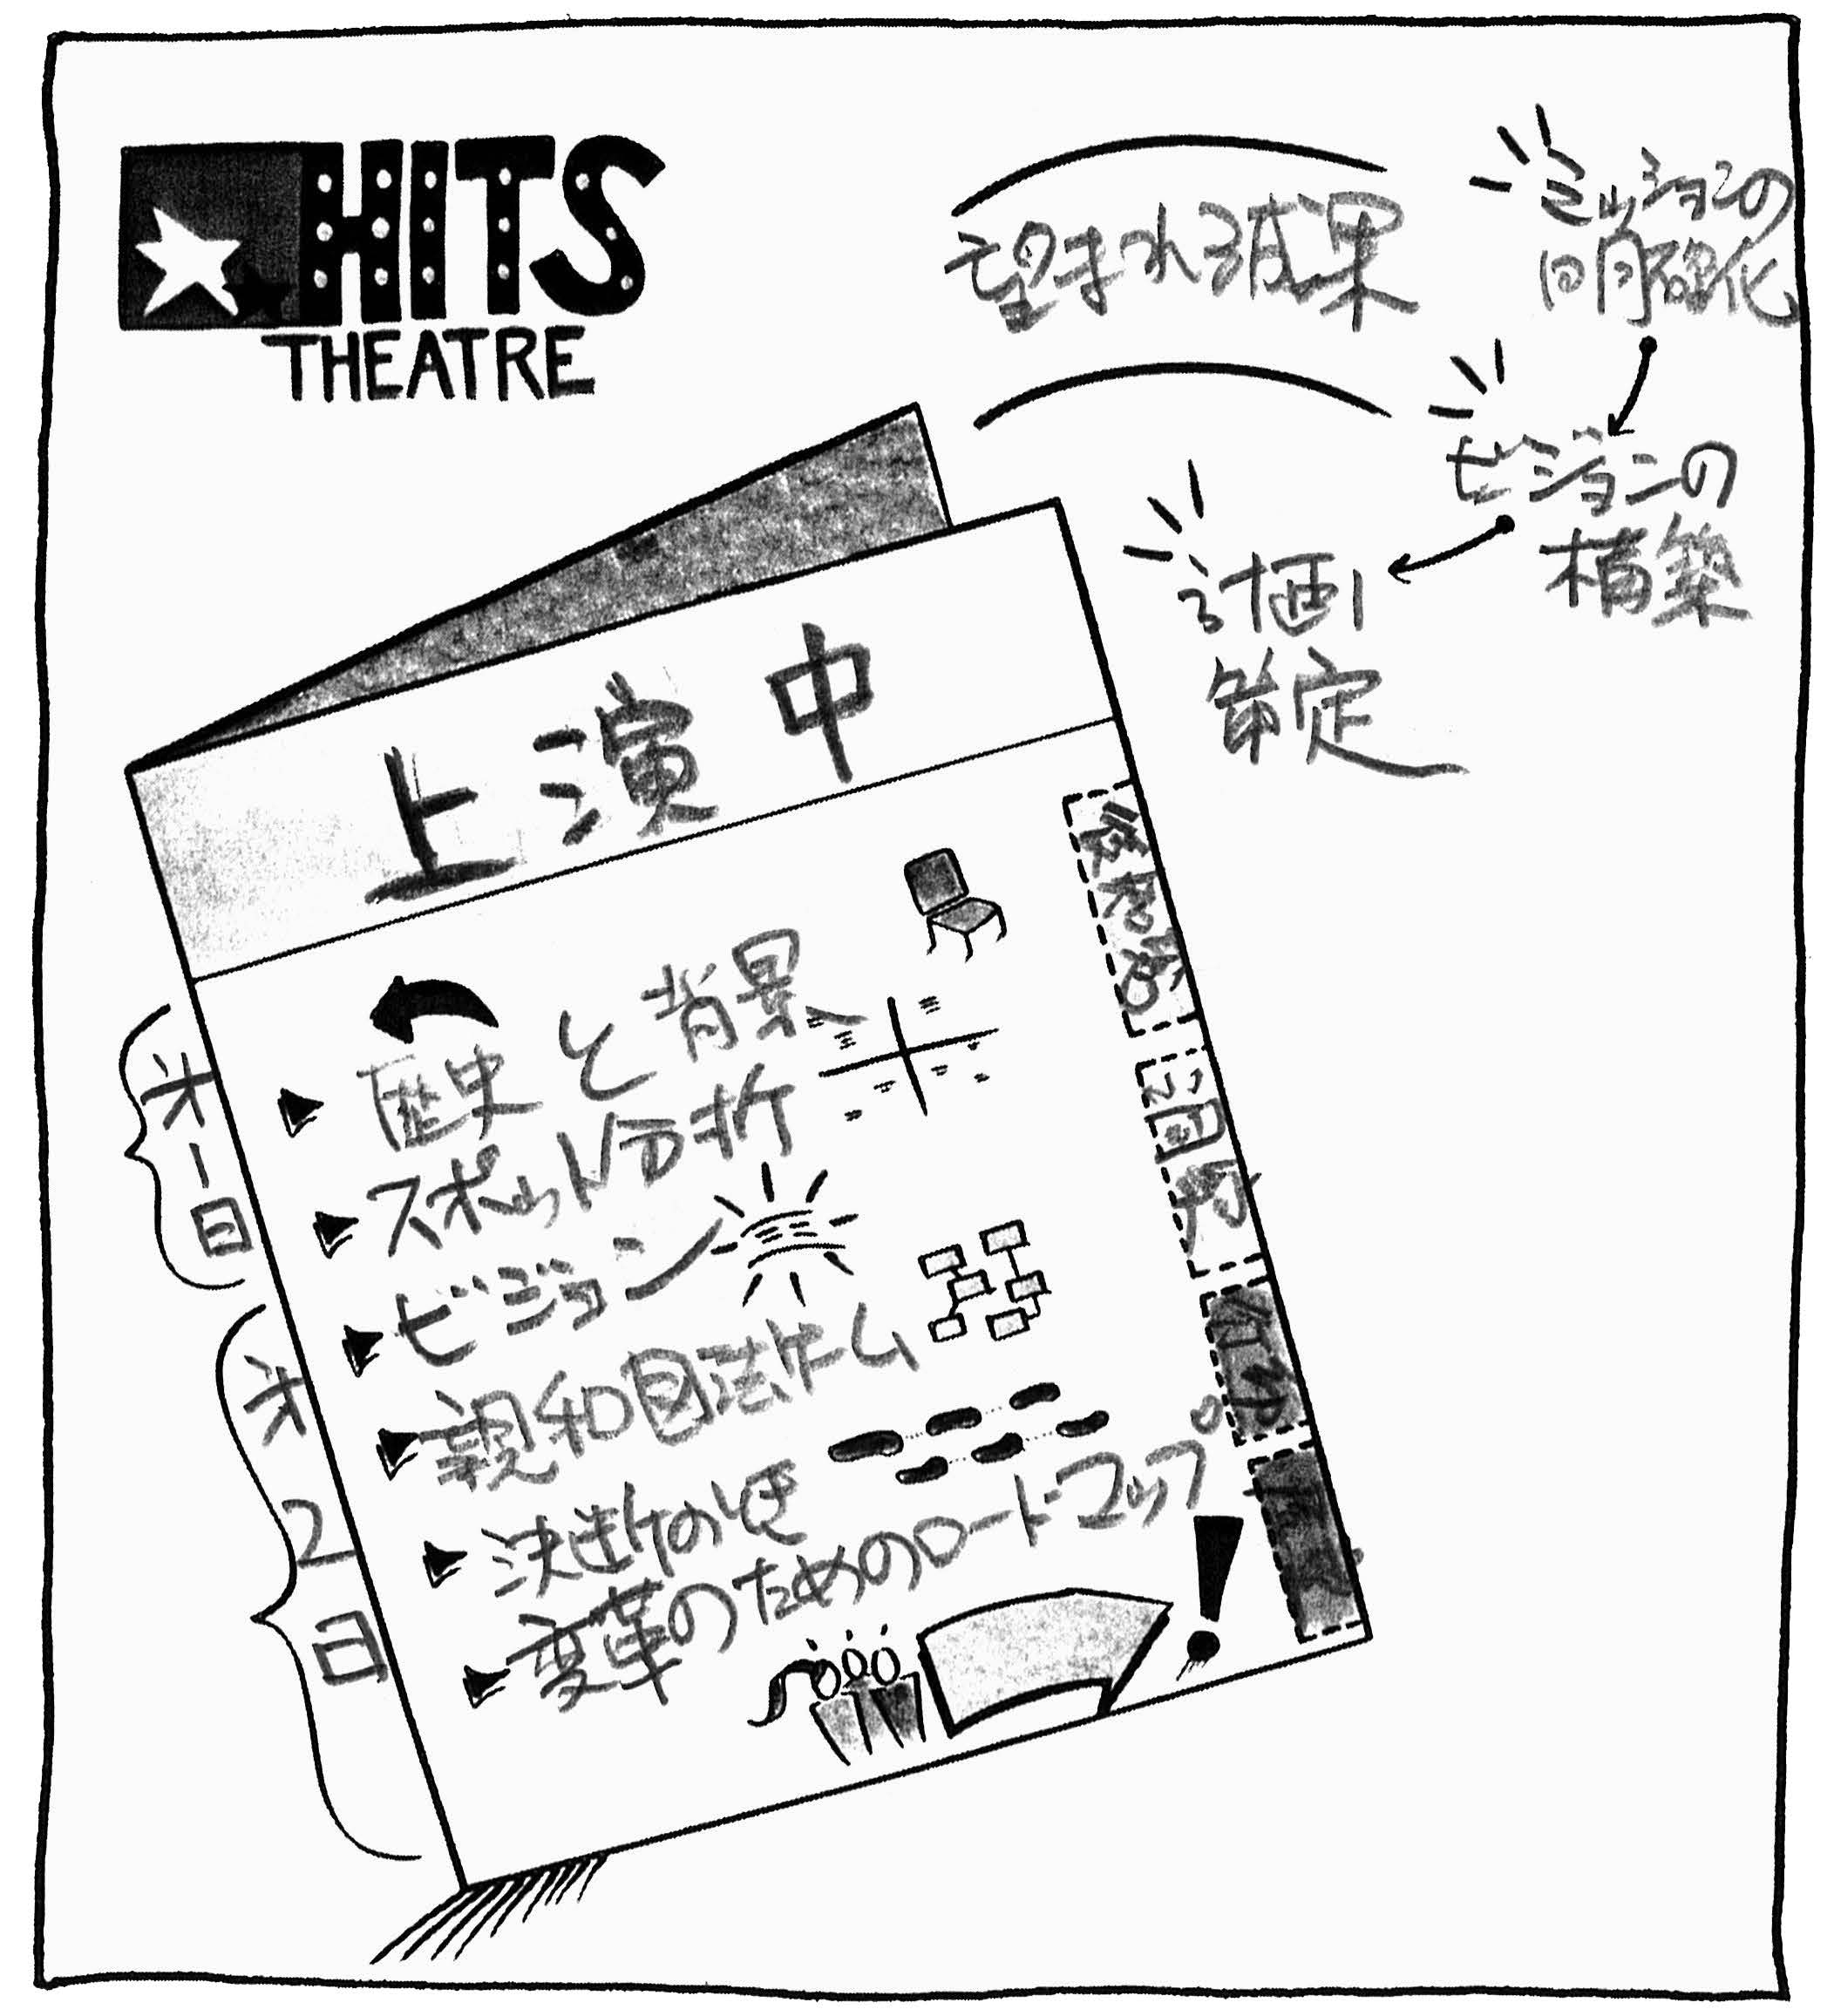 HITS
THEATRE
望まれる成果
ミッションの
明確化
ビジョンの
構築
計画
策定
上演中
才一日
歴史と背景
スポット分析
ビジョン
才2日
親和図法ゲーム
決断のとき
変革のためのロードマップ
役割